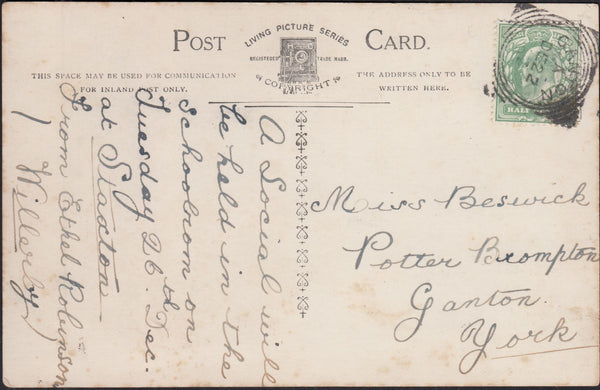 POST CARD.
LIVING PICTURE SERIES
REGISTERED TRADE MARK
COPYRIGHT
THIS SPACE MAY BE USED FOR COMMUNICATION
FOR INLAND POST ONLY.
THE ADDRESS ONLY TO BE
WRITTEN HERE.
HALF
A Social will
be held in the
schoolroom on
Tuesday 26. Dec.
at Staxton
From Ethel Robinson
Willerby
Miss Beswick
Potter Brompton
Ganton.
York.